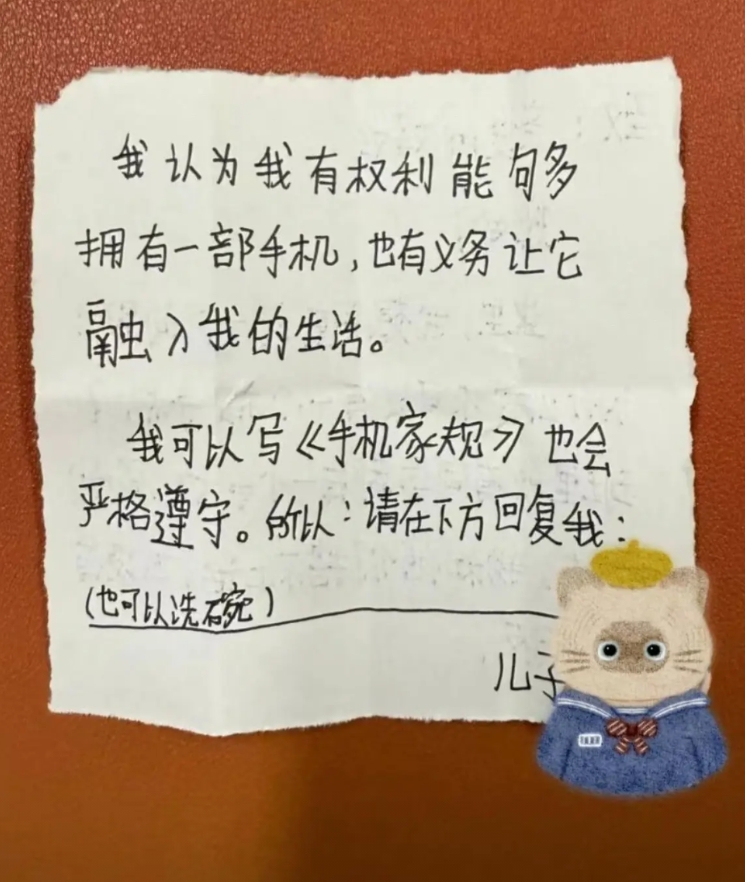 我认为我有权利能句多
拥有一部手机,也有义务让它
融入我的生活。
我可以写《手机家规》也会
严格遵守。所以:请在下方回复我:
(也可以洗碗)
儿子